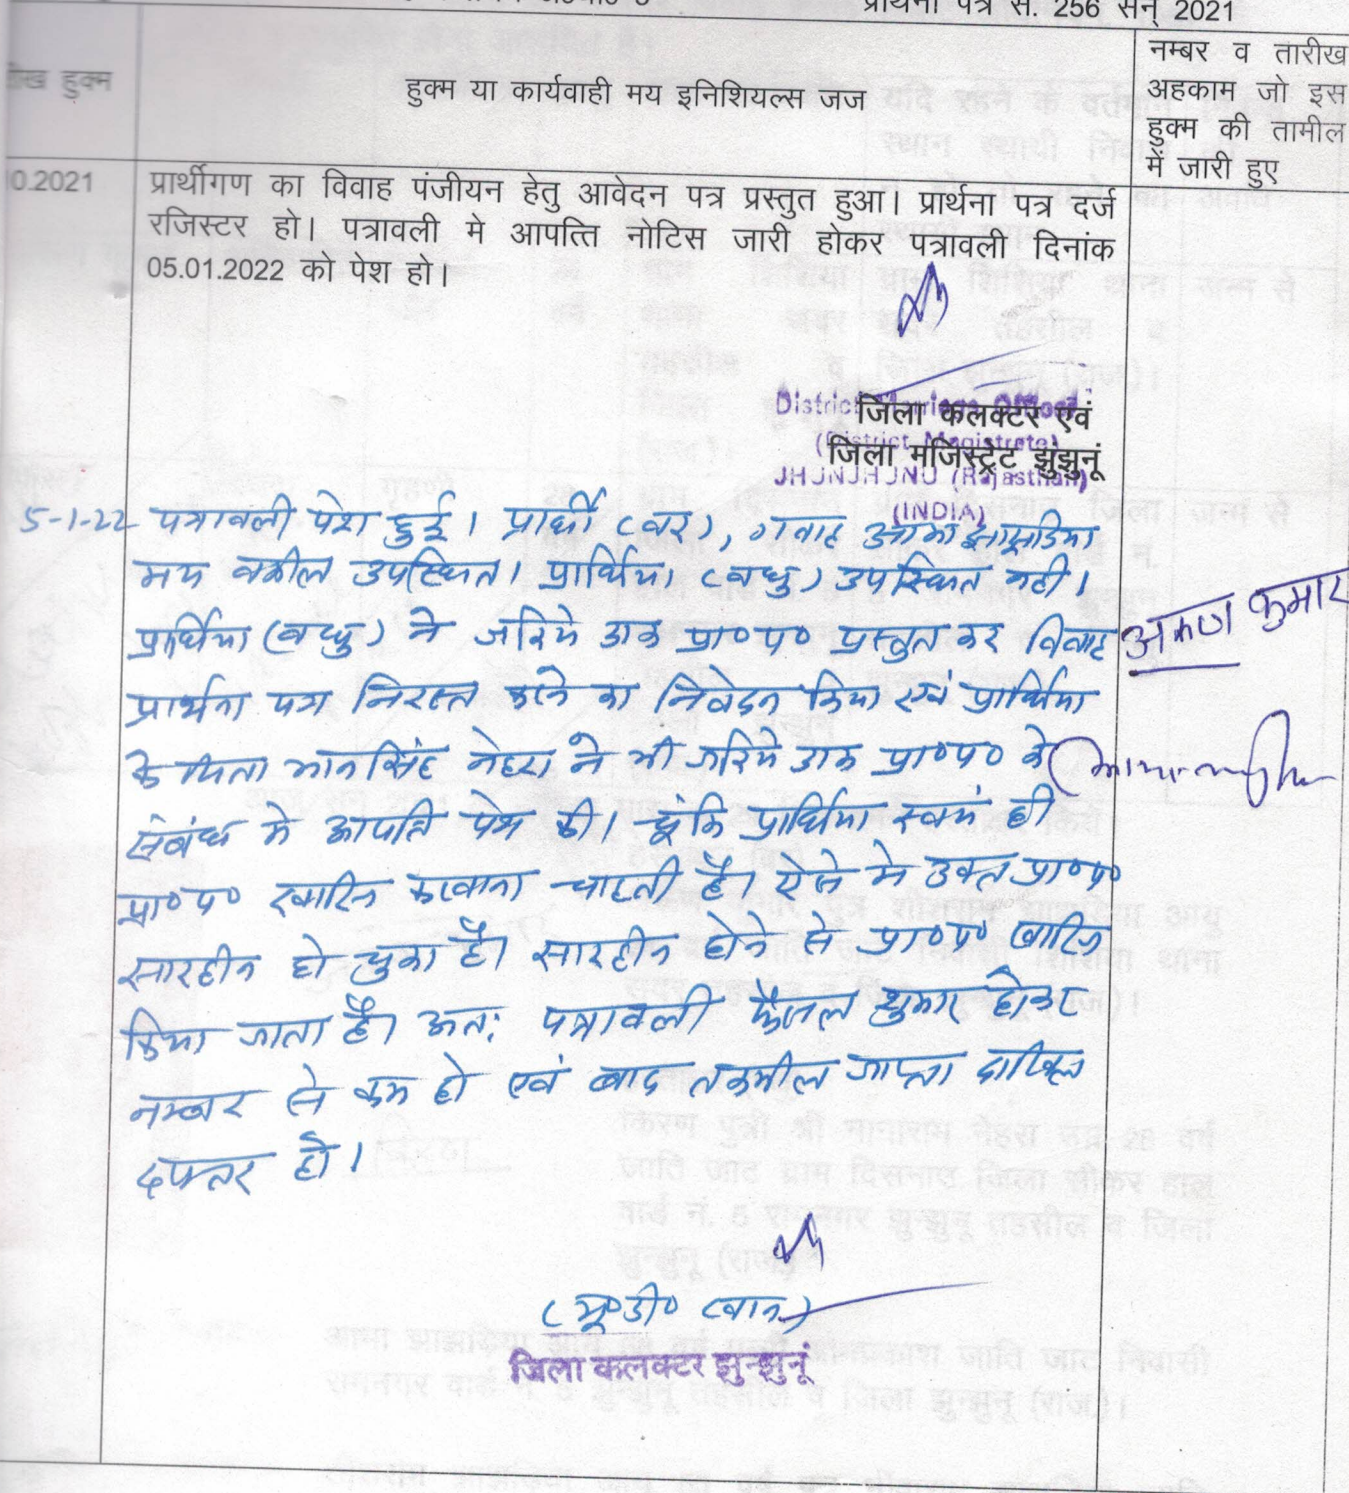 प्रार्थना पत्र सं. 256 सन् 2021
हुक्म
हुक्म या कार्यवाही मय इनिशियल्स जज
नम्बर व तारीख
अहकाम जो इस
हुक्म की तामील
में जारी हुए
0.2021
प्रार्थीगण का विवाह पंजीयन हेतु आवेदन पत्र प्रस्तुत हुआ। प्रार्थना पत्र दर्ज
रजिस्टर हो। पत्रावली मे आपत्ति नोटिस जारी होकर पत्रावली दिनांक
05.01.2022 को पेश हो।
District Marriage Officer
जिला कलक्टर एवं
(District Magistrate)
जिला मजिस्ट्रेट झुंझुनूं
JHUNJHUNU (Rajasthan)
(INDIA)
5-1-22 पत्रावली पेश हुई। प्रार्थी (वर), गवाह आभा झाझड़िया
मय वकील उपस्थित। प्रार्थिया (वधु) उपस्थित नही।
प्रार्थिया (वधु) ने जरिये डाक प्रा०प० प्रस्तुत कर विवाह
अरूण कुमार
प्रार्थना पत्र निरस्त करने का निवेदन किया एवं प्रार्थिया
के पिता मानसिंह नेहरा ने भी जरिये डाक प्रा०प० के
संबंध मे आपति पेश की। चूंकि प्रार्थिया स्वयं ही
प्रा०प० खारिज करवाना चाहती है। ऐसे मे उक्त प्रा०प०
सारहीन हो चुका है। सारहीन होने से प्रा०प० खारिज
किया जाता है। अतः पत्रावली फैसल शुमार होकर
नम्बर से कम हो एवं बाद तकमील जाप्ता दाखिल
दफ्तर हो।
(यू०डी० खान)
जिला कलक्टर झुन्झुनूं